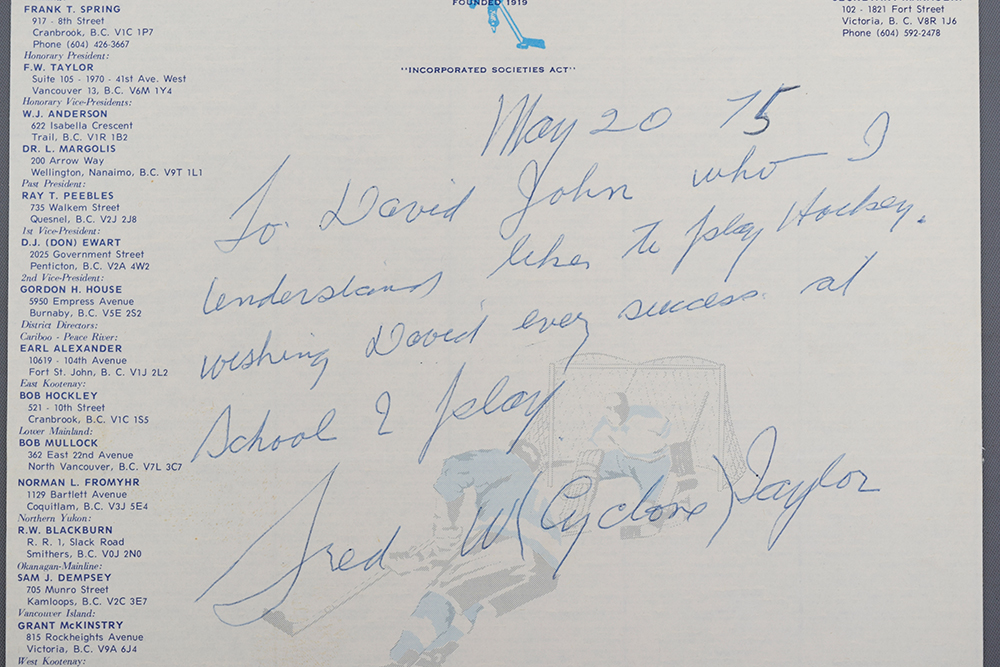 FRANK T. SPRING
917 - 8th Street
Cranbrook, B.C. V1C 1P7
Phone (604) 426-3667
Honorary President:
F.W. TAYLOR
Suite 105 - 1970 - 41st Ave. West
Vancouver 13, B.C. V6M 1Y4
Honorary Vice-Presidents:
W.J. ANDERSON
622 Isabella Crescent
Trail, B.C. V1R 1B2
DR. L. MARGOLIS
200 Arrow Way
Wellington, Nanaimo, B.C. V9T 1L1
Past President:
RAY T. PEEBLES
735 Walkem Street
Quesnel, B.C. V2J 2J8
1st Vice-President:
D.J. (DON) EWART
2025 Government Street
Penticton, B.C. V2A 4W2
2nd Vice-President:
GORDON H. HOUSE
5950 Empress Avenue
Burnaby, B.C. V5E 2S2
District Directors:
Cariboo - Peace River:
EARL ALEXANDER
10619 - 104th Avenue
Fort St. John, B. C. V1J 2L2
East Kootenay:
BOB HOCKLEY
521 - 10th Street
Cranbrook, B.C. V1C 1S5
Lower Mainland:
BOB MULLOCK
362 East 22nd Avenue
North Vancouver, B.C. V7L 3C7
NORMAN L. FROMYHR
1129 Bartlett Avenue
Coquitlam, B.C. V3J 5E4
Northern Yukon:
R.W. BLACKBURN
R. R. 1, Slack Road
Smithers, B.C. V0J 2N0
Okanagan-Mainline:
SAM J. DEMPSEY
705 Munro Street
Kamloops, B.C. V2C 3E7
Vancouver Island:
GRANT McKINSTRY
815 Rockheights Avenue
Victoria, B.C. V9A 6J4
West Kootenay:
FOUNDED 1919
"INCORPORATED SOCIETIES ACT"
102 - 1821 Fort Street
Victoria, B. C. V8R 1J6
Phone (604) 592-2478
May 20 75
To David John who I
understand likes to play Hockey.
wishing David every success at
School & play
Fred W (Cyclone) Taylor